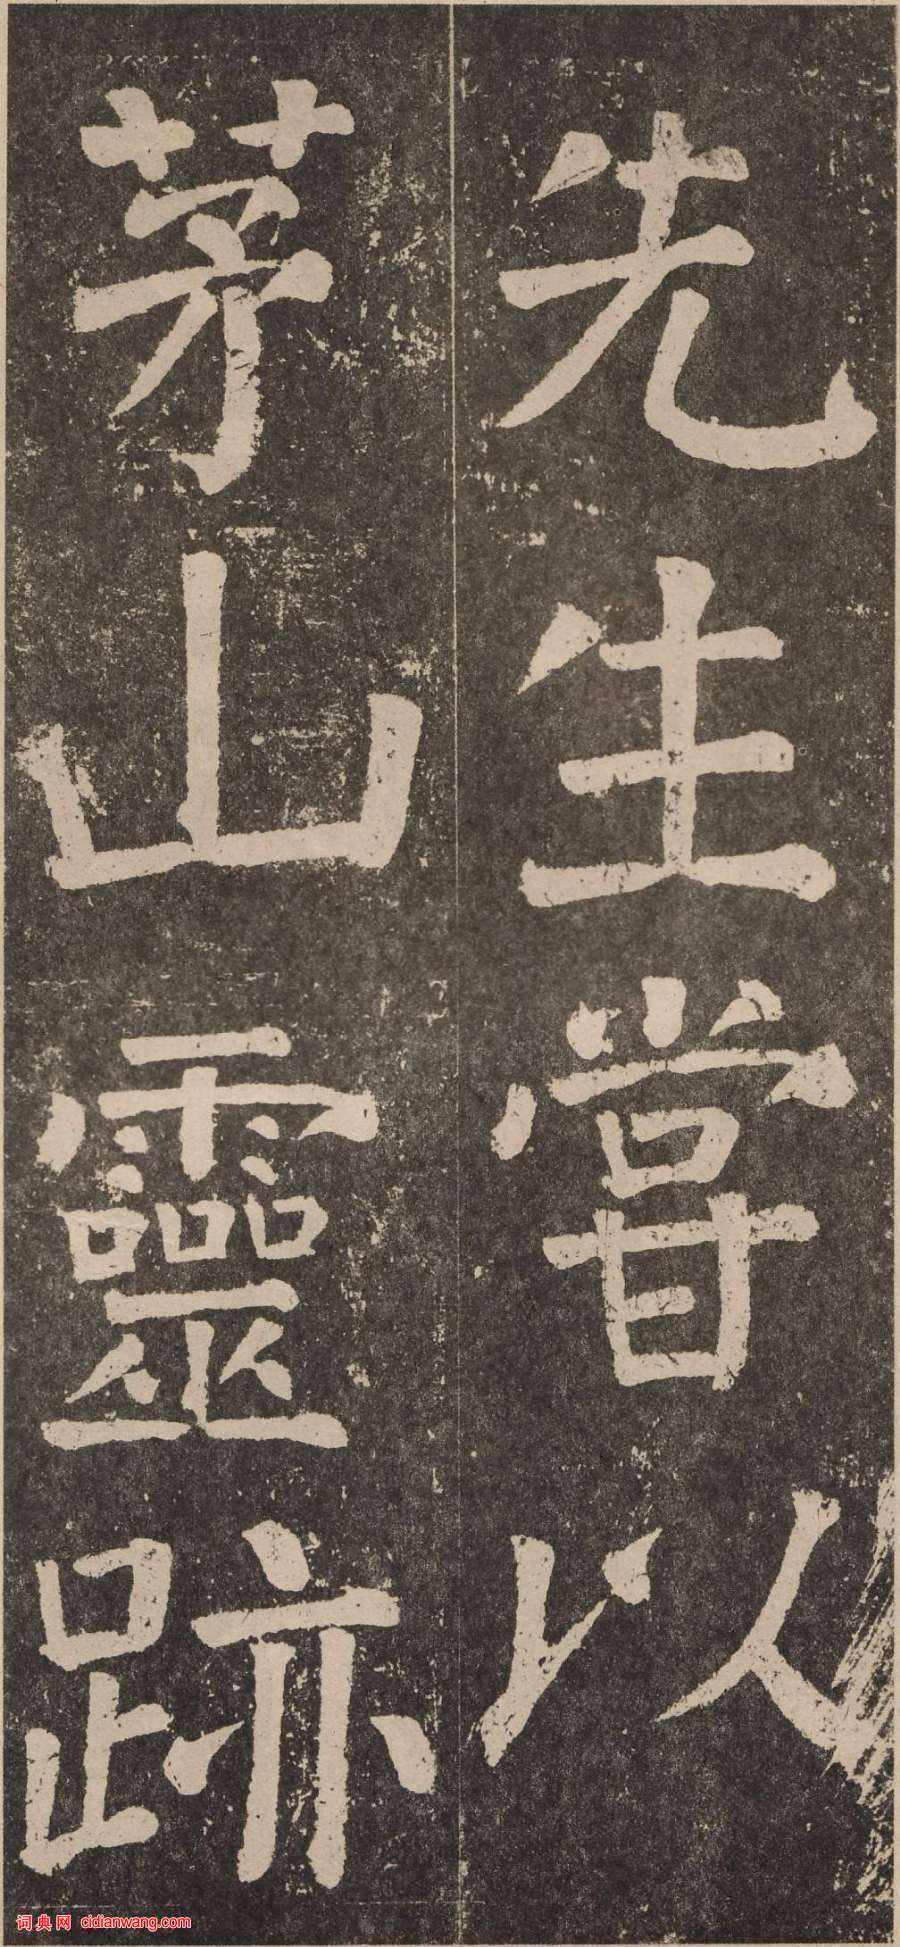 先生甞以
茅山靈跡
词典网 cidianwang.com